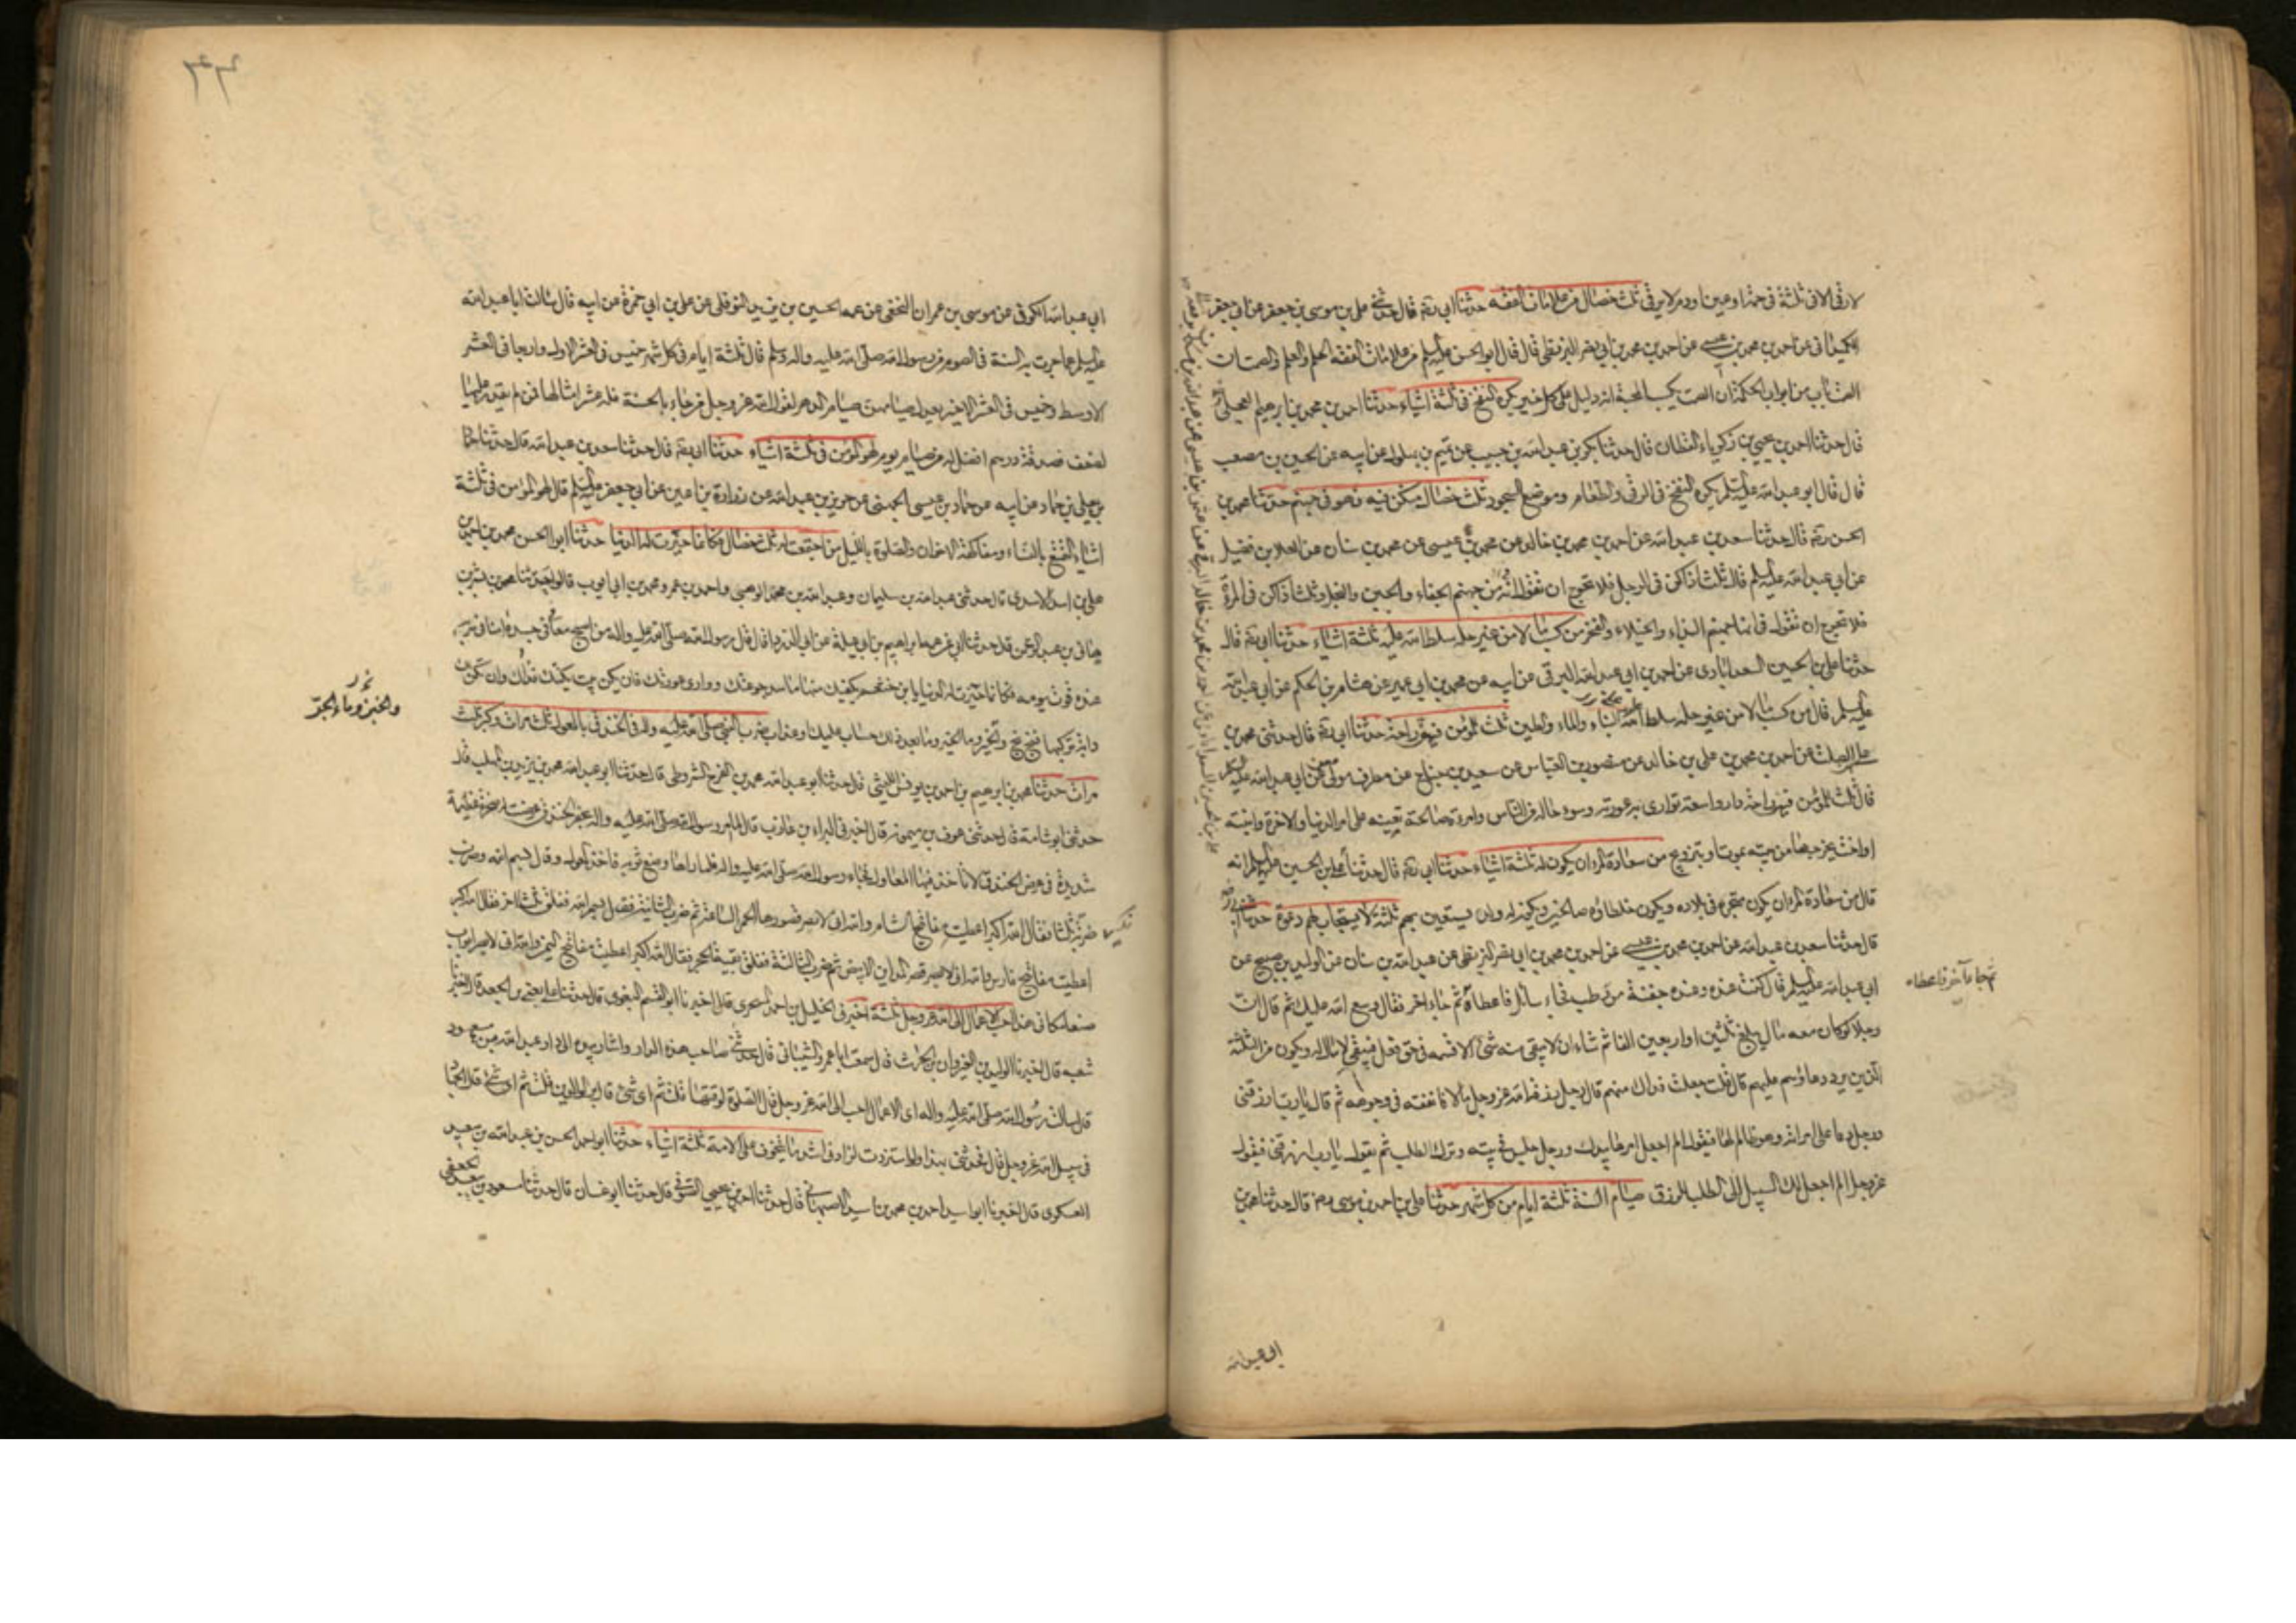 لا رقى الا فى ثلثة فى حمة او عين او دم لا يرقى ثلث خصال من علامات الفقه حدثنا ابى ره قال حدثنى على بن موسى بن جعفر بن ابى جعفر
الكميدانى عن احمد بن محمد بن عيسى عن احمد بن محمد بن ابى نصر البزنطى قال قال ابو الحسن عليه السلم من علامات الفقه الحلم والعلم والصمت ان
الصمت باب من ابواب الحكمة ان الصمت يكسب المحبة انه دليل على كل خير يكره النفخ فى ثلثة اشياء حدثنا احمد بن محمد بن ابرهيم العجلى
قال حدثنا احمد بن يحيى بن زكرياء القطان قال حدثنا بكر بن عبد الله بن حبيب عن تميم بن بهلول عن ابيه عن الحسين بن مصعب
قال قال ابو عبد الله عليه السلم يكره النفخ فى الرقى والطعام وموضع السجود ثلث خصال من يكن فيه فهو فى جهنم حدثنا محمد بن
الحسن ره قال حدثنا سعد بن عبد الله عن احمد بن محمد بن خالد عن محمد بن عيسى عن محمد بن سنان عن العلا بن فضيل
عن ابى عبد الله عليه السلم قال ثلث اذا كن فى الرجل فلا تحرج ان تقول انه من جهنم الجفاء والجبن والبخل وثلث اذا كن فى المرأة
فلا تحرج ان تقول انها من جهنم البذاء والخيلاء والفخر من كسب مالا من غير حله سلط الله عليه ثلثة اشياء حدثنا ابى ره قال
حدثنا على بن الحسين السعدابادى عن احمد بن ابى عبد الله البرقى عن ابيه عن محمد بن ابى عمير عن هشام بن الحكم عن ابى عبد الله
عليه السلم قال من كسب مالا من غير حله سلط الله عليه البناء والماء والطين ثلث للمؤمن فيهن راحة حدثنا ابى ره قال حدثنى محمد بن
على بن الصلت عن احمد بن محمد بن على بن خالد عن منصور بن العباس عن سعيد بن جناح عن مطرف مولى معن عن ابى عبد الله عليه السلم
قال ثلث للمؤمن فيهن راحة دار واسعة توارى عورته وسوء حاله من الناس وامرءة صالحة تعينه على امر الدنيا والاخرة وابنة
او اخت يخرجها من بيته بموت او بتزويج من سعادة المرء ان يكون له ثلثة اشياء حدثنا ابى ره قال حدثنا على بن الحسين عليه السلم انه
قال من سعادة المرء ان يكون متجره فى بلاده ويكون خلطاؤه صالحين ويكون له ولد يستعين بهم ثلثة لا يستجاب لهم دعوة حدثنا ابى
قال حدثنا سعد بن عبد الله عن احمد بن محمد بن عيسى عن احمد بن محمد بن ابى نصر البزنطى عن عبد الله بن سنان عن الوليد بن صبيح عن
ابى عبد الله عليه السلم قال كنت عنده وعنده جفنة من رطب فجاء سائل فاعطاه ثم جاء اخر فقال وسع الله عليك ثم قال ان
رجلا لو كان معه مال يبلغ ثلثين او اربعين الفا ثم شاء ان لا يبقى منه شئ الا قسمه فى حق فعل فيبقى لا مال له ويكون من الثلثة
الذين يرد دعاؤهم عليهم قال قلت جعلت فداك من هم قال رجل رزقه الله عز وجل مالا فانفقه فى وجوهه ثم قال يا رب ارزقنى
ورجل دعا على امراته وهو ظالم لها فيقول الم اجعل امرها بيدك ورجل جلس فى بيته وترك الطلب ثم يقول يا رب ارزقنى فيقول
عز وجل الم اجعل لك السبيل الى الطلب للرزق صيام السنة ثلثة ايام من كل شهر حدثنا على بن احمد بن موسى رض قال حدثنا محمد بن
ثم جاء آخر فاعطاه
ابى عبد الله
ابى عبد الله الكوفى عن موسى بن عمران النخعى عن عمه الحسين بن يزيد النوفلى عن على بن ابى حمزة عن ابيه قال سالت ابا عبد الله
عليه السلم عما جرت به السنة فى الصوم من رسول الله صلى الله عليه واله وسلم قال ثلثة ايام فى كل شهر خميس فى العشر الاول واربعا فى العشر
الاوسط وخميس فى العشر الاخير يعدل صيامهن صيام الدهر لقول الله عز وجل من جاء بالحسنة فله عشر امثالها فمن لم يقدر عليها
لضعف فصدقة درهم افضل له من صيام يوم لهو المؤمن فى ثلثة اشياء حدثنا ابى ره قال حدثنا سعد بن عبد الله قال حدثنا حماد
بن يعلى بن حماد عن ابيه عن حماد بن عيسى الجهنى عن حريز بن عبد الله عن زرارة بن اعين عن ابى جعفر عليه السلم قال لهو المؤمن فى ثلثة
اشياء التمتع بالنساء ومفاكهة الاخوان والصلوة بالليل من اجتمعت له ثلث خصال فكانما حيزت له الدنيا حدثنا ابو الحسن محمد بن احمد بن
على بن اسد الاسدى قال حدثنى عبد الله بن سليمان وعبد الله بن محمد الوهبى واحمد بن عمرو ومحمد بن ابى ايوب قالوا حدثنا محمد بن بشر بن
هانى بن عبد الرحمن قال حدثنا ابى عن عمه ابراهيم بن ابى عبلة عن ابى الدرداء قال قال رسول الله صلى الله عليه واله من اصبح معافى فى جسده امنا فى سربه
عنده قوت يومه فكانما حيزت له الدنيا يا بن خثعم يكفيك منها ما سد جوعتك ووارى عورتك فان يكن بيت يكنك فذاك وان تكن
دابة تركبها فبخ بخ والخير وما الخير وما بعد ذلك حساب عليك او عذاب ضرب النبى صلى الله عليه واله فى الخندق بالمعول ثلث مرات وكبر ثلث
مرات حدثنا محمد بن ابرهيم بن احمد بن يونس الليثى قال حدثنا ابو عبد الله محمد بن الفرج الشروطى قال حدثنا ابو عبد الله محمد بن يزيد بن المهلب قال
حدثنى ابو اسامة قال حدثنى عوف بن ميمون قال اخبرنى البراء بن عازب قال لما امر رسول الله صلى الله عليه واله بحفر الخندق عرضت له صخرة عظيمة
شديدة فى عرض الخندق لا تاخذ فيها المعاول فجاء رسول الله صلى الله عليه واله فلما راها وضع ثوبه فاخذ المعول وقال بسم الله وضرب
ضربة ثلثها فقال الله اكبر اعطيت مفاتيح الشام والله انى لابصر قصورها الحمر الساعة ثم ضرب الثانية فقال بسم الله ففلق ثلثا اخر فقال الله اكبر
اعطيت مفاتيح فارس والله انى لابصر قصر المداين الابيض ثم ضرب الثالثة ففلق بقية الحجر فقال الله اكبر اعطيت مفاتيح اليمن والله انى لابصر ابواب
صنعا مكانى هذا احب الاعمال الى الله عز وجل ثلثة اخبرنى الخليل بن احمد السجزى قال اخبرنا ابو القسم البغوى قال حدثنا على يعنى بن الجعد قال اخبرنا
شعبه قال اخبرنا الوليد بن العيزار بن الحرث قال سمعت ابا عمرو الشيبانى قال حدثنى صاحب هذه الدار واشار بيده الى دار عبد الله بن مسعود
قال سالت رسول الله صلى الله عليه واله اى الاعمال احب الى الله عز وجل قال الصلوة لوقتها قلت ثم اى شئ قال بر الوالدين قلت ثم اى شئ قال الجهاد
فى سبيل الله عز وجل قال فحدثنى بهذا ولو استزدت لزادنى اشد ما يتخوف على الامة ثلثة اشياء حدثنا ابو احمد الحسن بن عبد الله بن سعيد
العسكرى قال اخبرنا ابو اسيد احمد بن محمد بن اسيد الاصبهانى قال حدثنا احمد بن يحيى الصوفى قال حدثنا ابو غسان قال حدثنا مسعود بن سعد الجعفى
والخبز وماء الجر